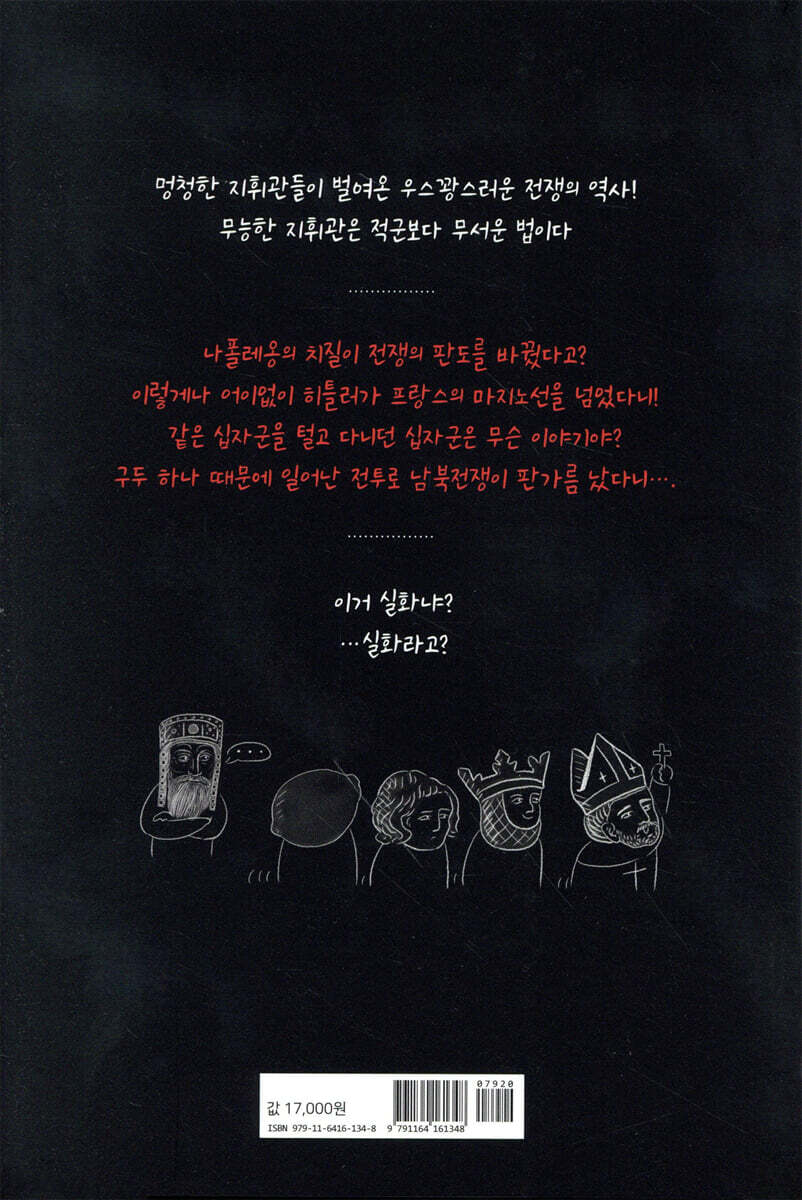 멍청한 지휘관들이 벌여온 우스꽝스러운 전쟁의 역사!
무능한 지휘관은 적군보다 무서운 법이다
................
나폴레옹의 치질이 전쟁의 판도를 바꿨다고?
이렇게나 어이없이 히틀러가 프랑스의 마지노선을 넘었다니!
같은 십자군을 털고 다니던 십자군은 무슨 이야기야?
구두 하나 때문에 일어난 전투로 남북전쟁이 판가름 났다니….
................
이거 실화냐?
…실화라고?
...
07920
값 17,000원
ISBN 979-11-6416-134-8
9 791164 161348